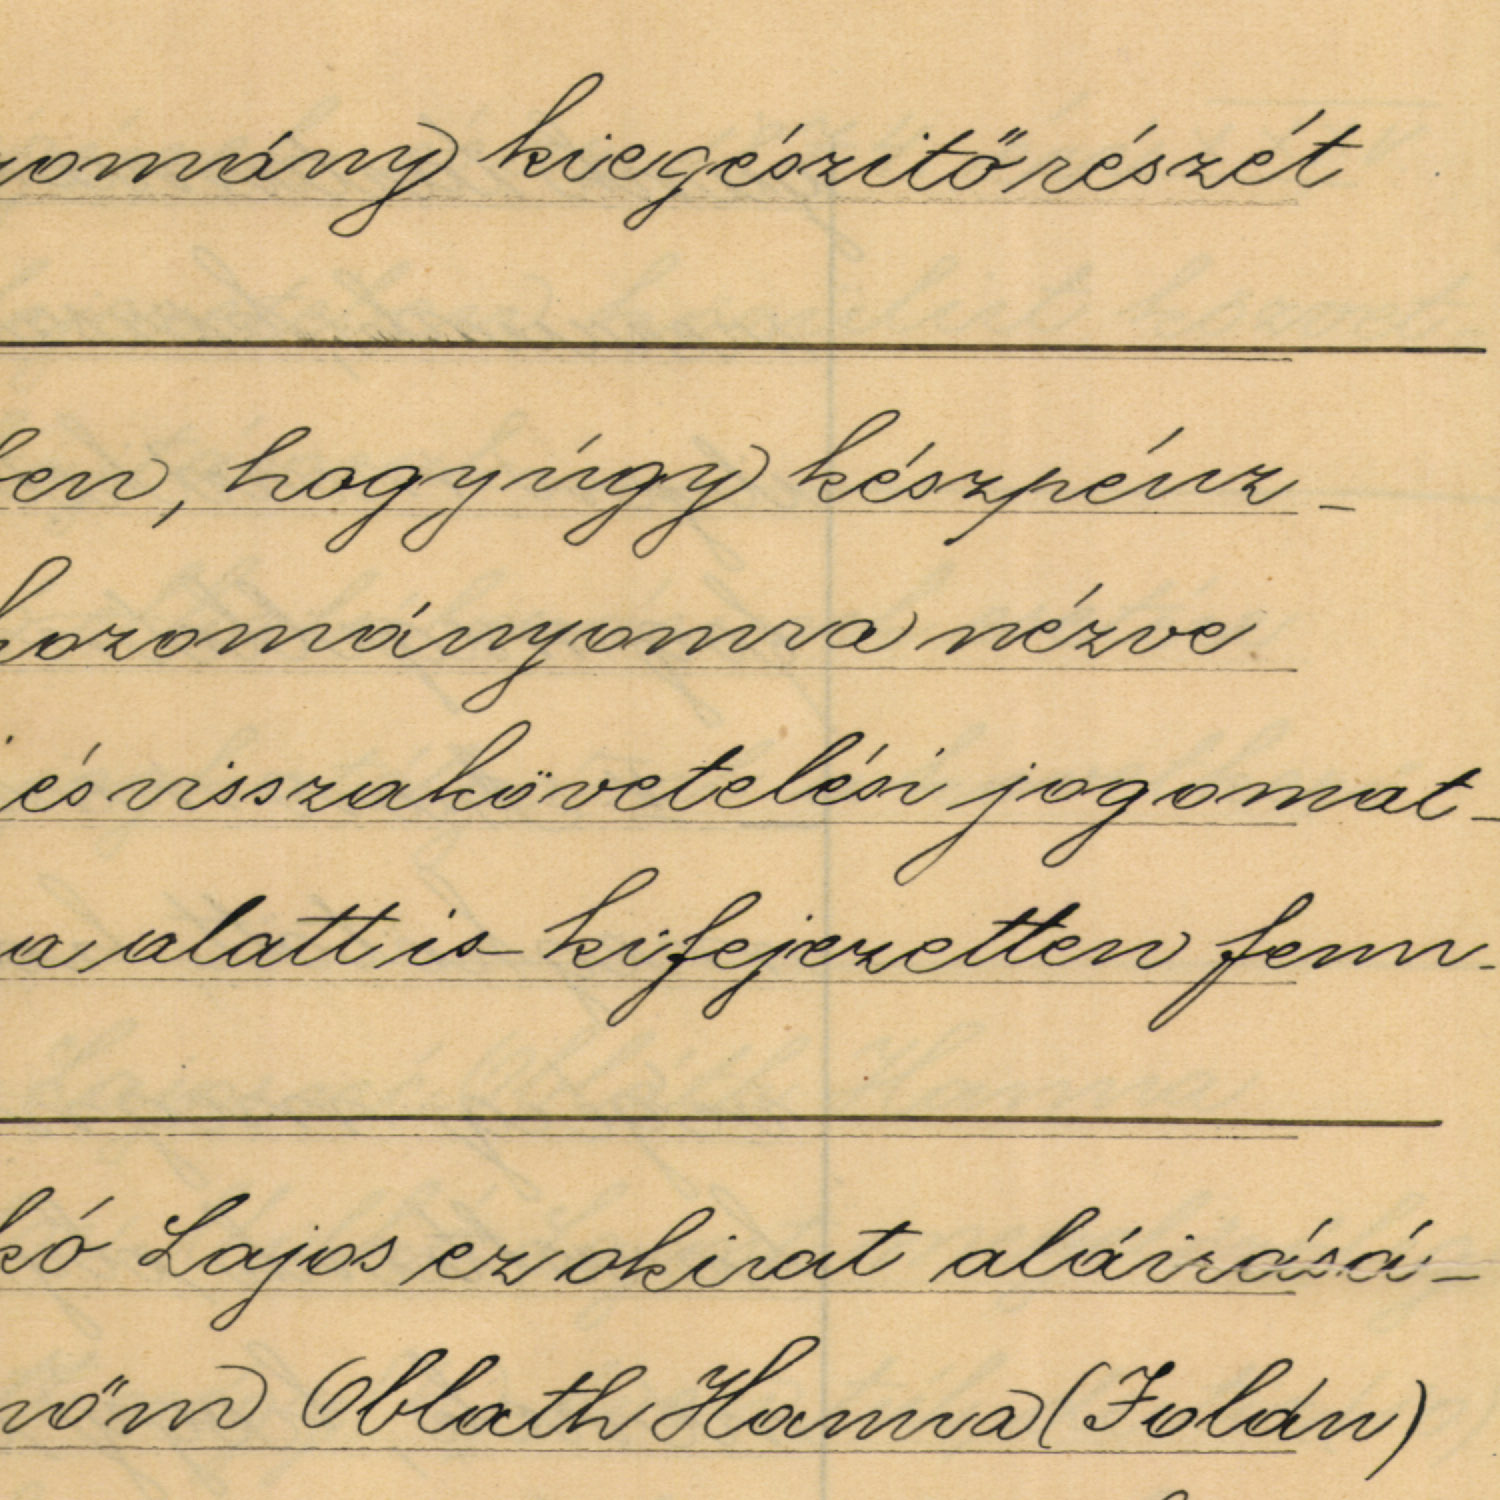 zomány kiegészitő részét
ben, hogy úgy készpénz-
hozományomra nézve
és visszakövetelési jogomat-
a alatt is kifejezetten fenn-
kó Lajos ez okirat aláirásá-
nőm Oblath Hanna (Jolán)